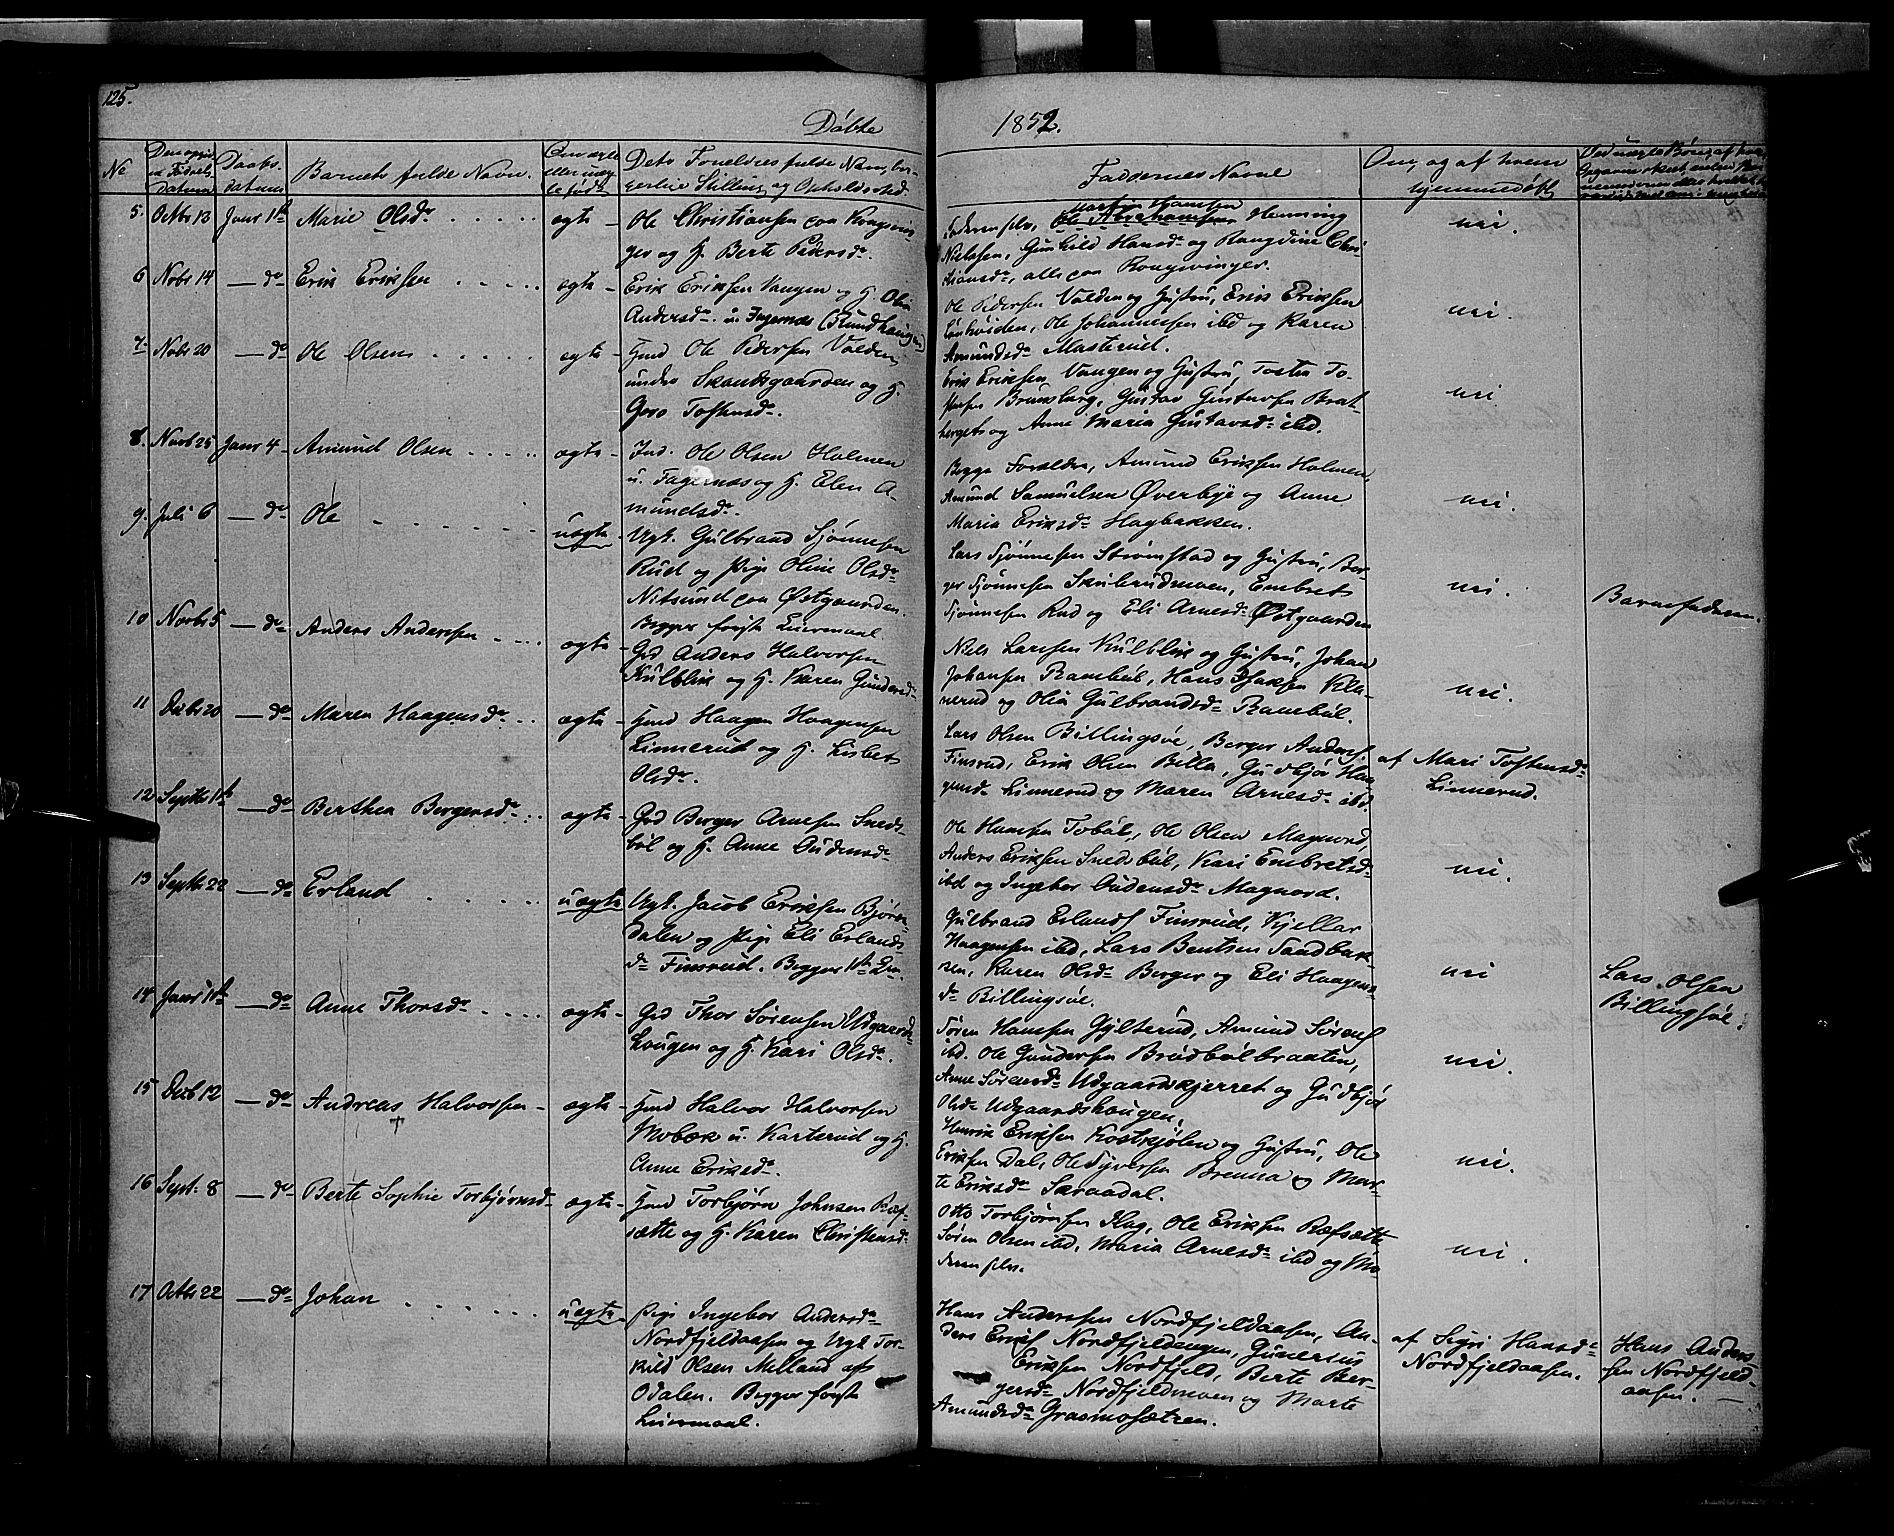 125.
Døbte
1852.
No
Daabs-
datum
Barnets fulde Navn.
Faddernes Navne
Om, og af hvem
hjemmedøbt
5. Octbr 13 Janr 1st Marie Olsdr ægte Ole Christiansen paa Kongsvin-
ger og H. Berte Pedersdr.
Faderen selv, Henning
Nielsen, Gunhild Hansdr og Ragndine Chri-
stiansdr, alle paa Kongsvinger.
nei.
6 Nobr 14 — do Erik Eriksen ægte Erik Eriksen Vangen og H. Olia
Andersdr. u. Fagernæs
Ole Pedersen Valden og Hustru, Erik Eriksen
Ole Johannessen ibd og Karen
Amundsdr Masterud.
nei.
7. Nobr 20 — do Ole Olsen ægte Hmd Ole Pedersen Valden
under Skandsgaarden og H.
Goro Tostensdr.
Erik Eriksen Vangen og Hustru, Tosten To-
stensen Brunsberg, Gustav Gustavsen Brat-
berget og Anne Maria Gustavsdr ibd.
nei
8. Novbr 25 Janr 4 Amund Olsen ægte Ind. Ole Olsen Holmen
u. Fagernæs og H. Elen A-
mundsdr.
Begge Forældre, Amund Eriksen Holmen,
Amund Samuelsen Øverbye og Anne
Maria Eriksdr Hagbakken.
nei.
9. Juli 6 — do Ole uægte Ugk. Gulbrand Tjønnesen
Rud og Pige Oline Olsdr
Nitsund paa Østgaarden.
Begges første Leiermaal
Lars Tjønnesen Strømstad og Hustru, Ber-
ger Tjønnesen Skinbrudmoen, Embret
Tjønnesen Rud og Eli Arnesdr Østgaarden
nei.
Barnefaderen.
10 Novbr 5 — do Anders Andersen ægte Grd Anders Halvorsen
Kulblik og H. Karen Gundersdr
Niels Larsen Kulblik og Hustru, Johan
Johansen Rambøl, Hans Isaksen Kla-
nerud og Olia Gulbrandsdr Rambøl.
nei.
11 Debr 20 — do Maren Haagensdr ægte Hmd Haagen Haagensen
Linnerud og H. Lisbet
Olsdr.
Lars Olsen Billingsøe, Berger Anders.
Finsrud, Erik Olsen Billa, Gudbjør Haa-
gensdr Linnerud og Maren Arnesdr ibd.
af Mari Tostensdr
Linnerud.
12 Septbr 1st — do Berthea Bergersdr ægte Grd Berger Arnesen Sneds-
bøl og H. Anne Audensdr
Ole Hansen Tobøl, Ole Olsen Magnord,
Anders Eriksen Snedsbøl, Kari Embretsdr
ibd og Ingebor Audensdr Magnord.
nei.
13 Septbr 22 — do Erland uægte Ugk. Jacob Eriksen Bjørn-
dalen og Pige Eli Erlands-
dr Finsrud. Begges 1ste
Gulbrand Erlands. Finsrud, Kjellar
Haagensen ibd, Lars Bentsen Sandbak-
ken, Karen Olsdr Berger og Eli Haagens-
dr Billingsøe.
nei
Lars Olsen
Billingsøe.
14 Janr 1st — do Anne Thorsdr ægte Grd Thor Sørensen Udgaards-
Haugen og H. Kari Olsdr.
Søren Hansen Gylterud, Amund Sørens.
ibd. Ole Gundersen Brødbølbraaten,
Anne Sørensdr Udgaardskjerret og Gudbjør
Olsdr Udgaardshaugen.
nei.
15 Debr 12 — do Andreas Halvorsen ægte Hmd Halvor Halvorsen
Mobæk u. Karterud og H.
Anne Eriksdr.
Henrik Eriksen Kostkjølen og Hustru, Ole
Eriksen Dal, Ole Syversen Brenna og Mar-
te Eriksdr Skraadal.
nei.
16 Sept. 8 — do Berte Sophie Torbjørnsdr ægte Hmd Torbjørn Johnsen Ræf-
sætte og H. Karen Christensdr
Otto Torbjørnsen Hag, Ole Eriksen Ræfsætte
Søren Olsen ibd, Maria Arnesdr ibd og Mo-
deren selv.
nei.
17 Octbr 22 — do Johan uægte Pige Ingebor Andersdr
Nordfjeldaasen og Ugk Tor-
kild Olsen Melland af
Odalen. Begges første
Leiermaal.
Hans Andersen Nordfjeldaasen, An-
ders Eriks. Nordfjeldengen, Gunerius
Eriksen Nordfjeld, Berte Ber-
gersdr Nordfjeldmoen og Marte
Amundsdr Grasmosætren.
af Sigri Hansdr
Nordfjeldaasen.
Hans Ander-
sen Nordfjeld-
aasen.